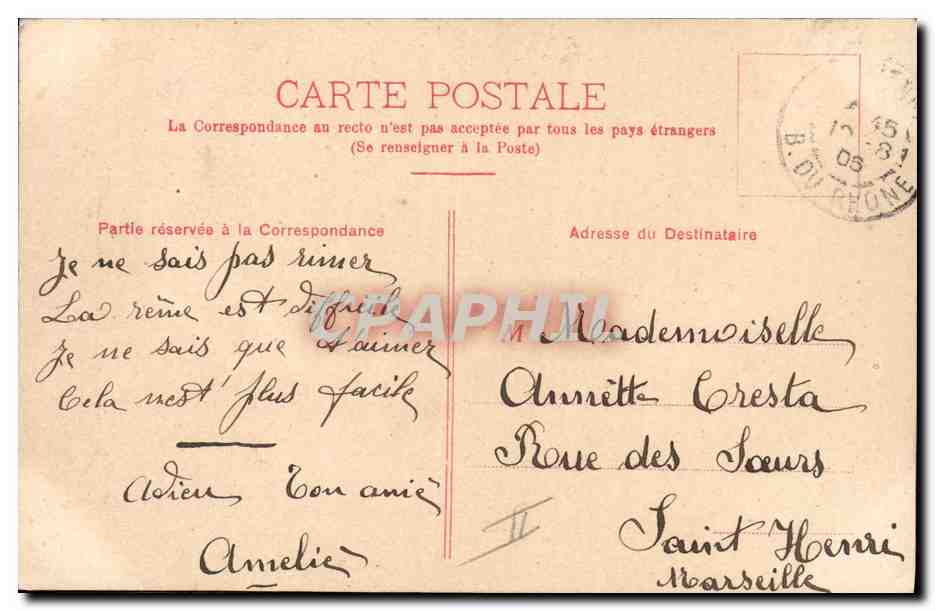 CARTE POSTALE
La Correspondance au recto n'est pas acceptée par tous les pays étrangers
(Se renseigner à la Poste)
Partie réservée à la Correspondance
Je ne sais pas rimer
La rème est difficile
Je ne sais que t'aimer
Cela n'est plus facile
Adieu Ton amie
Amelie
Adresse du Destinataire
M Mademoiselle
Annètte Cresta
Rue des Sœurs
Saint Henri
Marseille
II
45
10 -8
06
B. DU RHONE
CPAPHIL